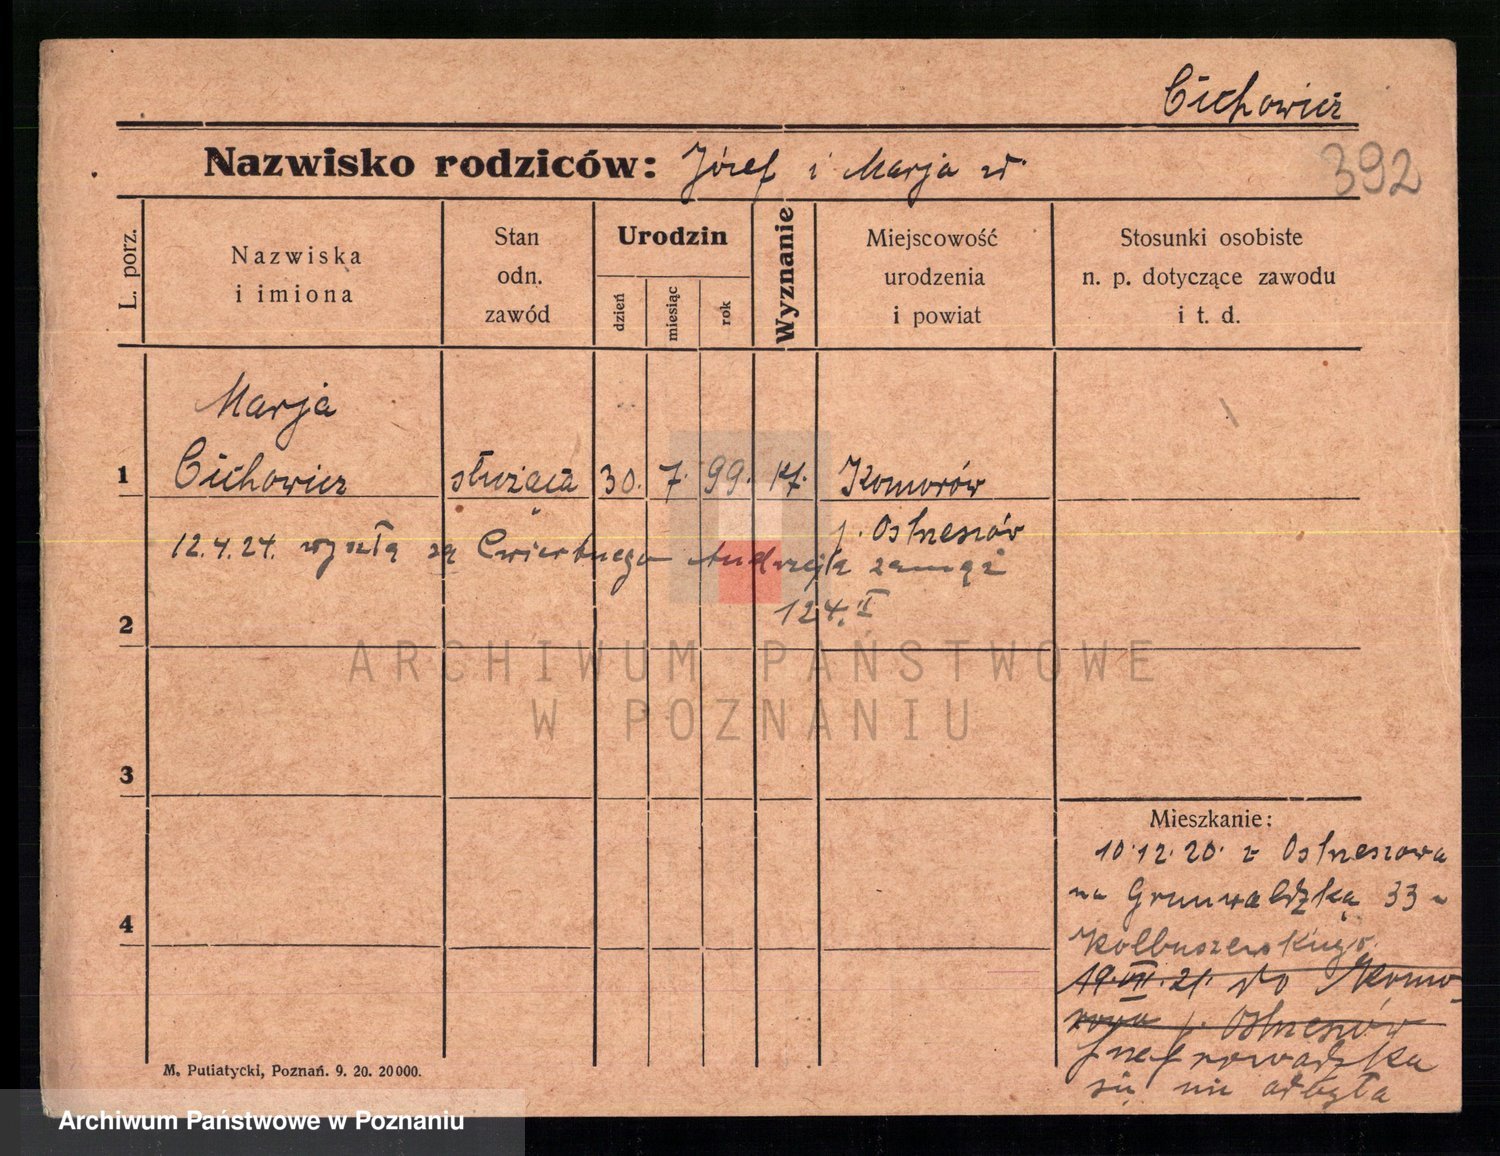 Cichowicz
Nazwisko rodziców: Józef i Marja
392
L. porz.
Nazwiska
i imiona
Stan
odn.
zawód
Urodzin
dzień
miesiąc
rok
Wyznanie
Miejscowość
urodzenia
i powiat
Stosunki osobiste
n. p. dotyczące zawodu
i t. d.
Marja
1 Cichowicz służąca 30. 7. 99. kt. Komorów
p. Ostrzeszów
12.4.24. wyszła za Cwiertniego Andrzeja zamąż
124. I
2
ARCHIWUM PAŃSTWOWE
W POZNANIU
3
Mieszkanie:
10.12.20. z Ostrzeszowa
na Grunwaldzką 33 u
Kolbuszewskiego.
4
19.VII.21. do Komo-
rowa p. Ostrzeszów
przeprowadzka
się nie odbyła
M. Putiatycki, Poznań. 9. 20. 20 000.
Archiwum Państwowe w Poznaniu